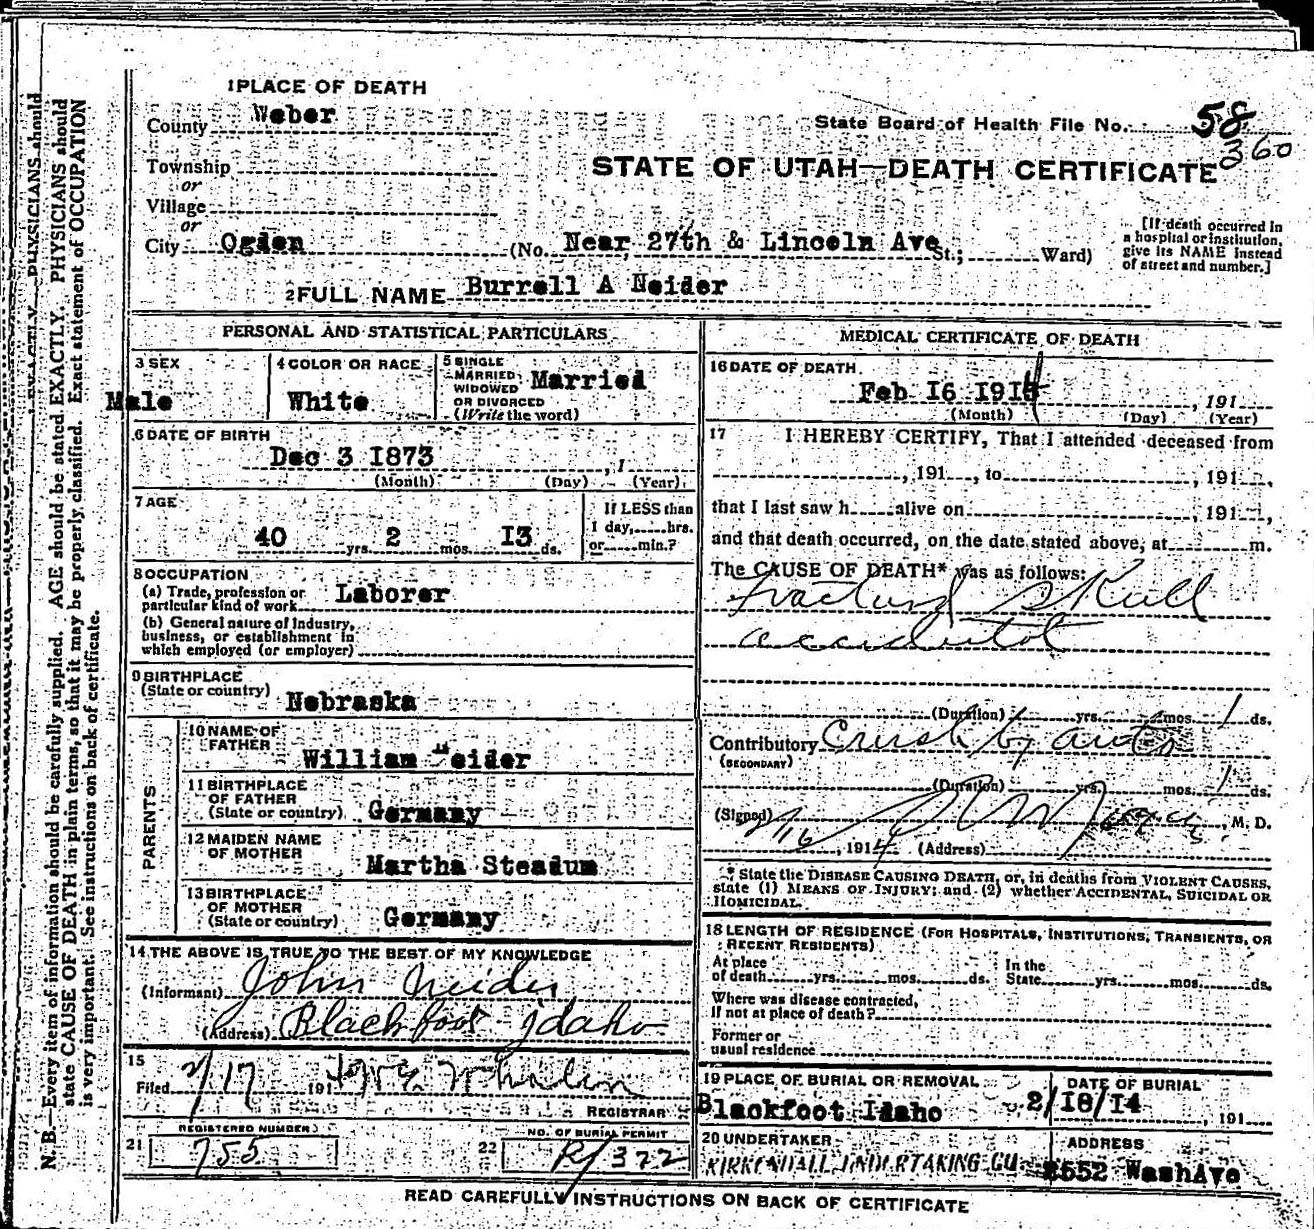 1 PLACE OF DEATH
County Weber
State Board of Health File No. 58
360
Township
or
STATE OF UTAH—DEATH CERTIFICATE
Village
or
City Ogden (No. Near 27th & Lincoln Ave St.; Ward)
[If death occurred in
a hospital or institution,
give its NAME instead
of street and number.]
2 FULL NAME Burrell A Neider
PERSONAL AND STATISTICAL PARTICULARS
3 SEX
Male
4 COLOR OR RACE
White
5 SINGLE
MARRIED
WIDOWED
OR DIVORCED
(Write the word)
Married
6 DATE OF BIRTH
Dec 3 1873 , 1
(Month) (Day) (Year)
7 AGE
40 yrs. 2 mos. 13 ds.
If LESS than
1 day, hrs.
or min.?
8 OCCUPATION
(a) Trade, profession or
particular kind of work Laborer
(b) General nature of Industry,
business, or establishment in
which employed (or employer)
9 BIRTHPLACE
(State or country) Nebraska
PARENTS
10 NAME OF
FATHER
William Neider
11 BIRTHPLACE
OF FATHER
(State or country) Germany
12 MAIDEN NAME
OF MOTHER
Martha Steadum
13 BIRTHPLACE
OF MOTHER
(State or country) Germany
14 THE ABOVE IS TRUE TO THE BEST OF MY KNOWLEDGE
(Informant) John Neider
(Address) Blackfoot Idaho
15
Filed 2/17 191 Whalen
REGISTRAR
REGISTERED NUMBER
21 755
NO. OF BURIAL PERMIT
22 R/322
MEDICAL CERTIFICATE OF DEATH
16 DATE OF DEATH
Feb 16 1914 , 191
(Month) (Day) (Year)
17 I HEREBY CERTIFY, That I attended deceased from
, 191 , to , 191 ,
that I last saw h alive on , 191 ,
and that death occurred, on the date stated above, at m.
The CAUSE OF DEATH* was as follows:
Fractured Skull
accidental
(Duration) yrs. mos. 1 ds.
Contributory Crush by auto
(SECONDARY)
(Duration) yrs. mos. 1 ds.
(Signed) , M. D.
2/16 , 1914 (Address)
* State the DISEASE CAUSING DEATH, or, in deaths from VIOLENT CAUSES,
state (1) MEANS OF INJURY; and (2) whether ACCIDENTAL, SUICIDAL OR
HOMICIDAL.
18 LENGTH OF RESIDENCE (FOR HOSPITALS, INSTITUTIONS, TRANSIENTS, OR
RECENT RESIDENTS)
At place
of death yrs. mos. ds.
In the
State yrs. mos. ds.
Where was disease contracted,
if not at place of death?
Former or
usual residence
19 PLACE OF BURIAL OR REMOVAL
Blackfoot Idaho
DATE OF BURIAL
2/18/14 , 191
20 UNDERTAKER
KIRKENDALL UNDERTAKING CO
ADDRESS
2552 WashAve
READ CAREFULLY INSTRUCTIONS ON BACK OF CERTIFICATE
N. B.—Every item of information should be carefully supplied. AGE should be stated EXACTLY. PHYSICIANS should
state CAUSE OF DEATH in plain terms, so that it may be properly classified. Exact statement of OCCUPATION
is very important. See instructions on back of certificate.
EXACTLY. PHYSICIANS should